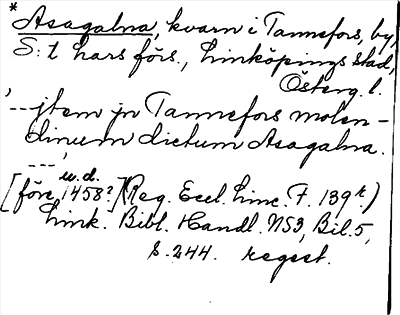 * Asagalna, kvarn i Tannefors, by,
S:t Larsförs., Linköpings stad,
Österg. l.
'---jtem jn Tannefors molen-
dinum dictum Asagalna.
---'
u.d.
[före 1458?] (Reg. Eccl. Linc. F. 139r.)
Link. Bibl. Handl. NS3, Bil. 5,
s. 244. regest.